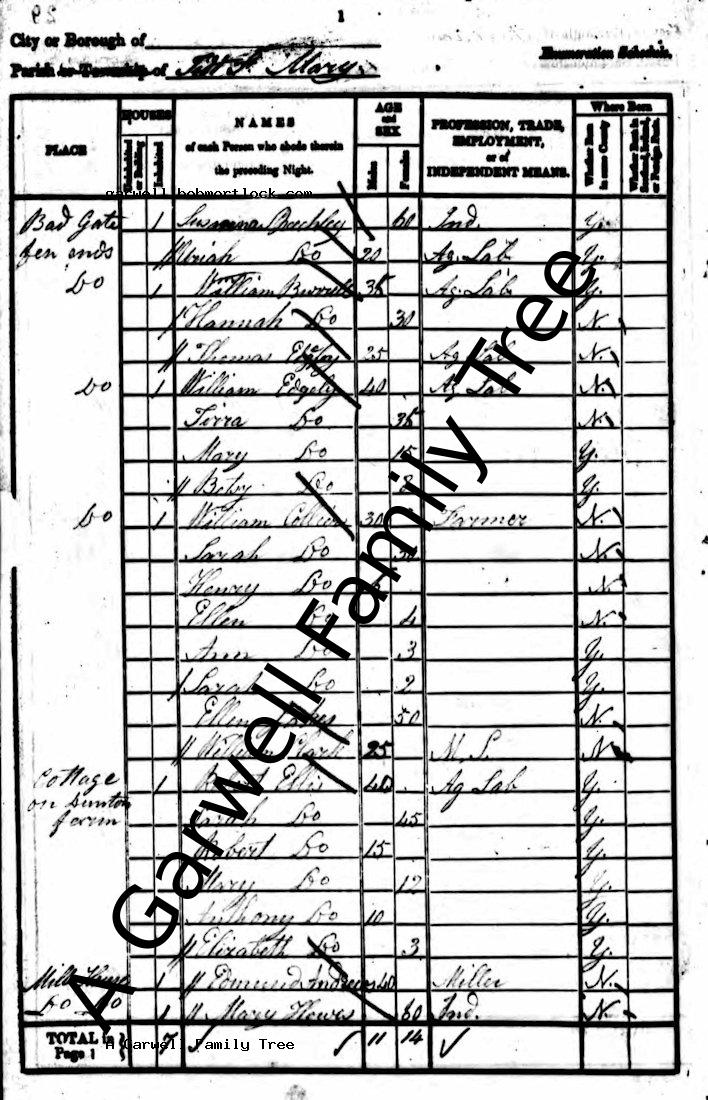 29
1
City or Borough of
Enumeration Schedule.
Parish or Township of Tilt St. Mary
PLACE
HOUSES
Uninhabited or Building
Inhabited
NAMES
of each Person who abode therein
the preceding Night.
AGE
and
SEX
Males
Females
PROFESSION, TRADE,
EMPLOYMENT,
or of
INDEPENDENT MEANS.
Where Born
Whether Born in same County
Whether Born in Scotland, Ireland, or Foreign Parts.
garwell.bobmortlock.com
Bad Gate 1 60 Ind. Y.
fen ends Uriah Do 20 Ag. Lab. Y.
Do 1 William 35 Ag. Lab. Y.
Hannah Do 30 N.
Thomas 25 Ag. Lab. N.
Do 1 William Edgely 40 Ag. Lab. N.
Do 35 N.
Mary Do 15 Y.
Do Y.
Do 1 William 30 Farmer N.
Sarah Do N.
Henry Do N.
Ellen Do 4 N.
Ann Do 3 Y.
Sarah Do 2 Y.
Ellen 50 N.
William Clark 25 M. S. N.
Cottage 1 Robert Ellis 40 Ag Lab Y.
on Sarah Do 45 Y.
Robert Do 15 Y.
Mary Do 12 Y.
Anthony Do 10 Y.
Elizabeth Do 3 Y.
Mill House 1 Edmund Andrews 40 Miller N.
Do Do 1 Mary Howes 60 Ind. N.
TOTAL in
Page 1
7 11 14
A Garwell Family Tree
A Garwell Family Tree